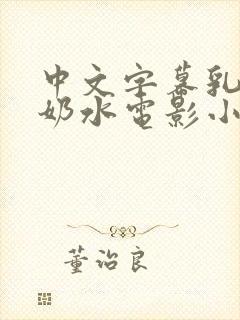 中文字幕乳
奶水电影小
董治良